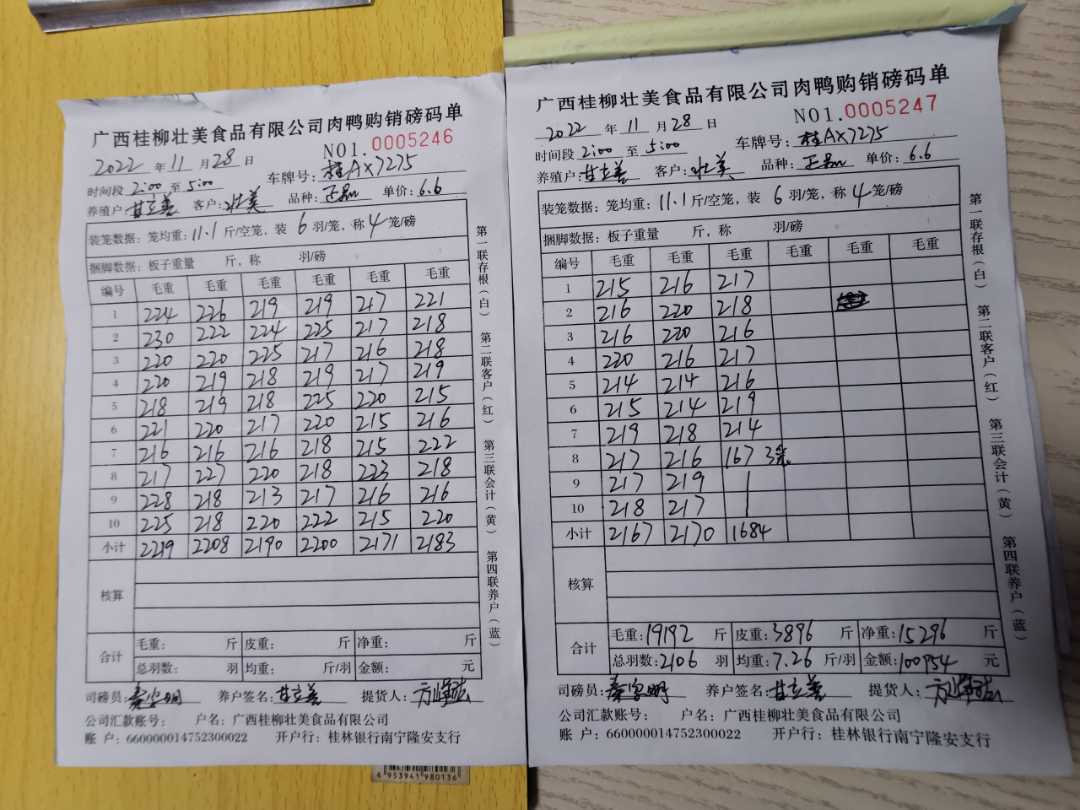 广西桂柳壮美食品有限公司肉鸭购销磅码单
NO1.0005246
2022 年 11 月 28 日
时间段 2:00 至 5:00 车牌号: 桂AX7275
养殖户: 甘立善 客户: 壮美 品种: 正品 单价: 6.6
装笼数据: 笼均重: 11.1 斤/空笼, 装 6 羽/笼, 称 4 笼/磅
捆脚数据: 板子重量 斤, 称 羽/磅
编号 毛重 毛重 毛重 毛重 毛重 毛重
1 224 226 219 219 217 221
2 230 222 224 225 217 218
3 220 220 225 217 216 218
4 220 219 218 219 217 219
5 218 219 218 225 220 215
6 221 220 217 220 215 216
7 216 216 216 218 215 222
8 217 227 220 218 223 218
9 228 218 213 217 216 216
10 225 218 220 222 215 220
小计 2219 2208 2190 2200 2171 2183
核算
合计 毛重: 斤 皮重: 斤 净重: 斤
总羽数: 羽 均重: 斤/羽 金额: 元
司磅员: 养户签名: 甘立善 提货人:
公司汇款账号: 户名: 广西桂柳壮美食品有限公司
账 户: 660000014752300022 开户行: 桂林银行南宁隆安支行
第一联存根(白) 第二联客户(红) 第三联会计(黄) 第四联养户(蓝)
6 953941 980136
广西桂柳壮美食品有限公司肉鸭购销磅码单
NO1.0005247
2022 年 11 月 28 日
时间段 2:00 至 5:00 车牌号: 桂AX7275
养殖户: 甘立善 客户: 壮美 品种: 正品 单价: 6.6
装笼数据: 笼均重: 11.1 斤/空笼, 装 6 羽/笼, 称 4 笼/磅
捆脚数据: 板子重量 斤, 称 羽/磅
编号 毛重 毛重 毛重 毛重 毛重 毛重
1 215 216 217
2 216 220 218
3 216 220 216
4 220 216 217
5 214 214 216
6 215 214 219
7 219 218 214
8 217 216 167 3笼
9 217 219
10 218 217
小计 2167 2170 1684
核算
合计 毛重: 19192 斤 皮重: 3896 斤 净重: 15296 斤
总羽数: 2106 羽 均重: 7.26 斤/羽 金额: 100954 元
司磅员: 养户签名: 甘立善 提货人:
公司汇款账号: 户名: 广西桂柳壮美食品有限公司
账 户: 660000014752300022 开户行: 桂林银行南宁隆安支行
第一联存根(白) 第二联客户(红) 第三联会计(黄) 第四联养户(蓝)